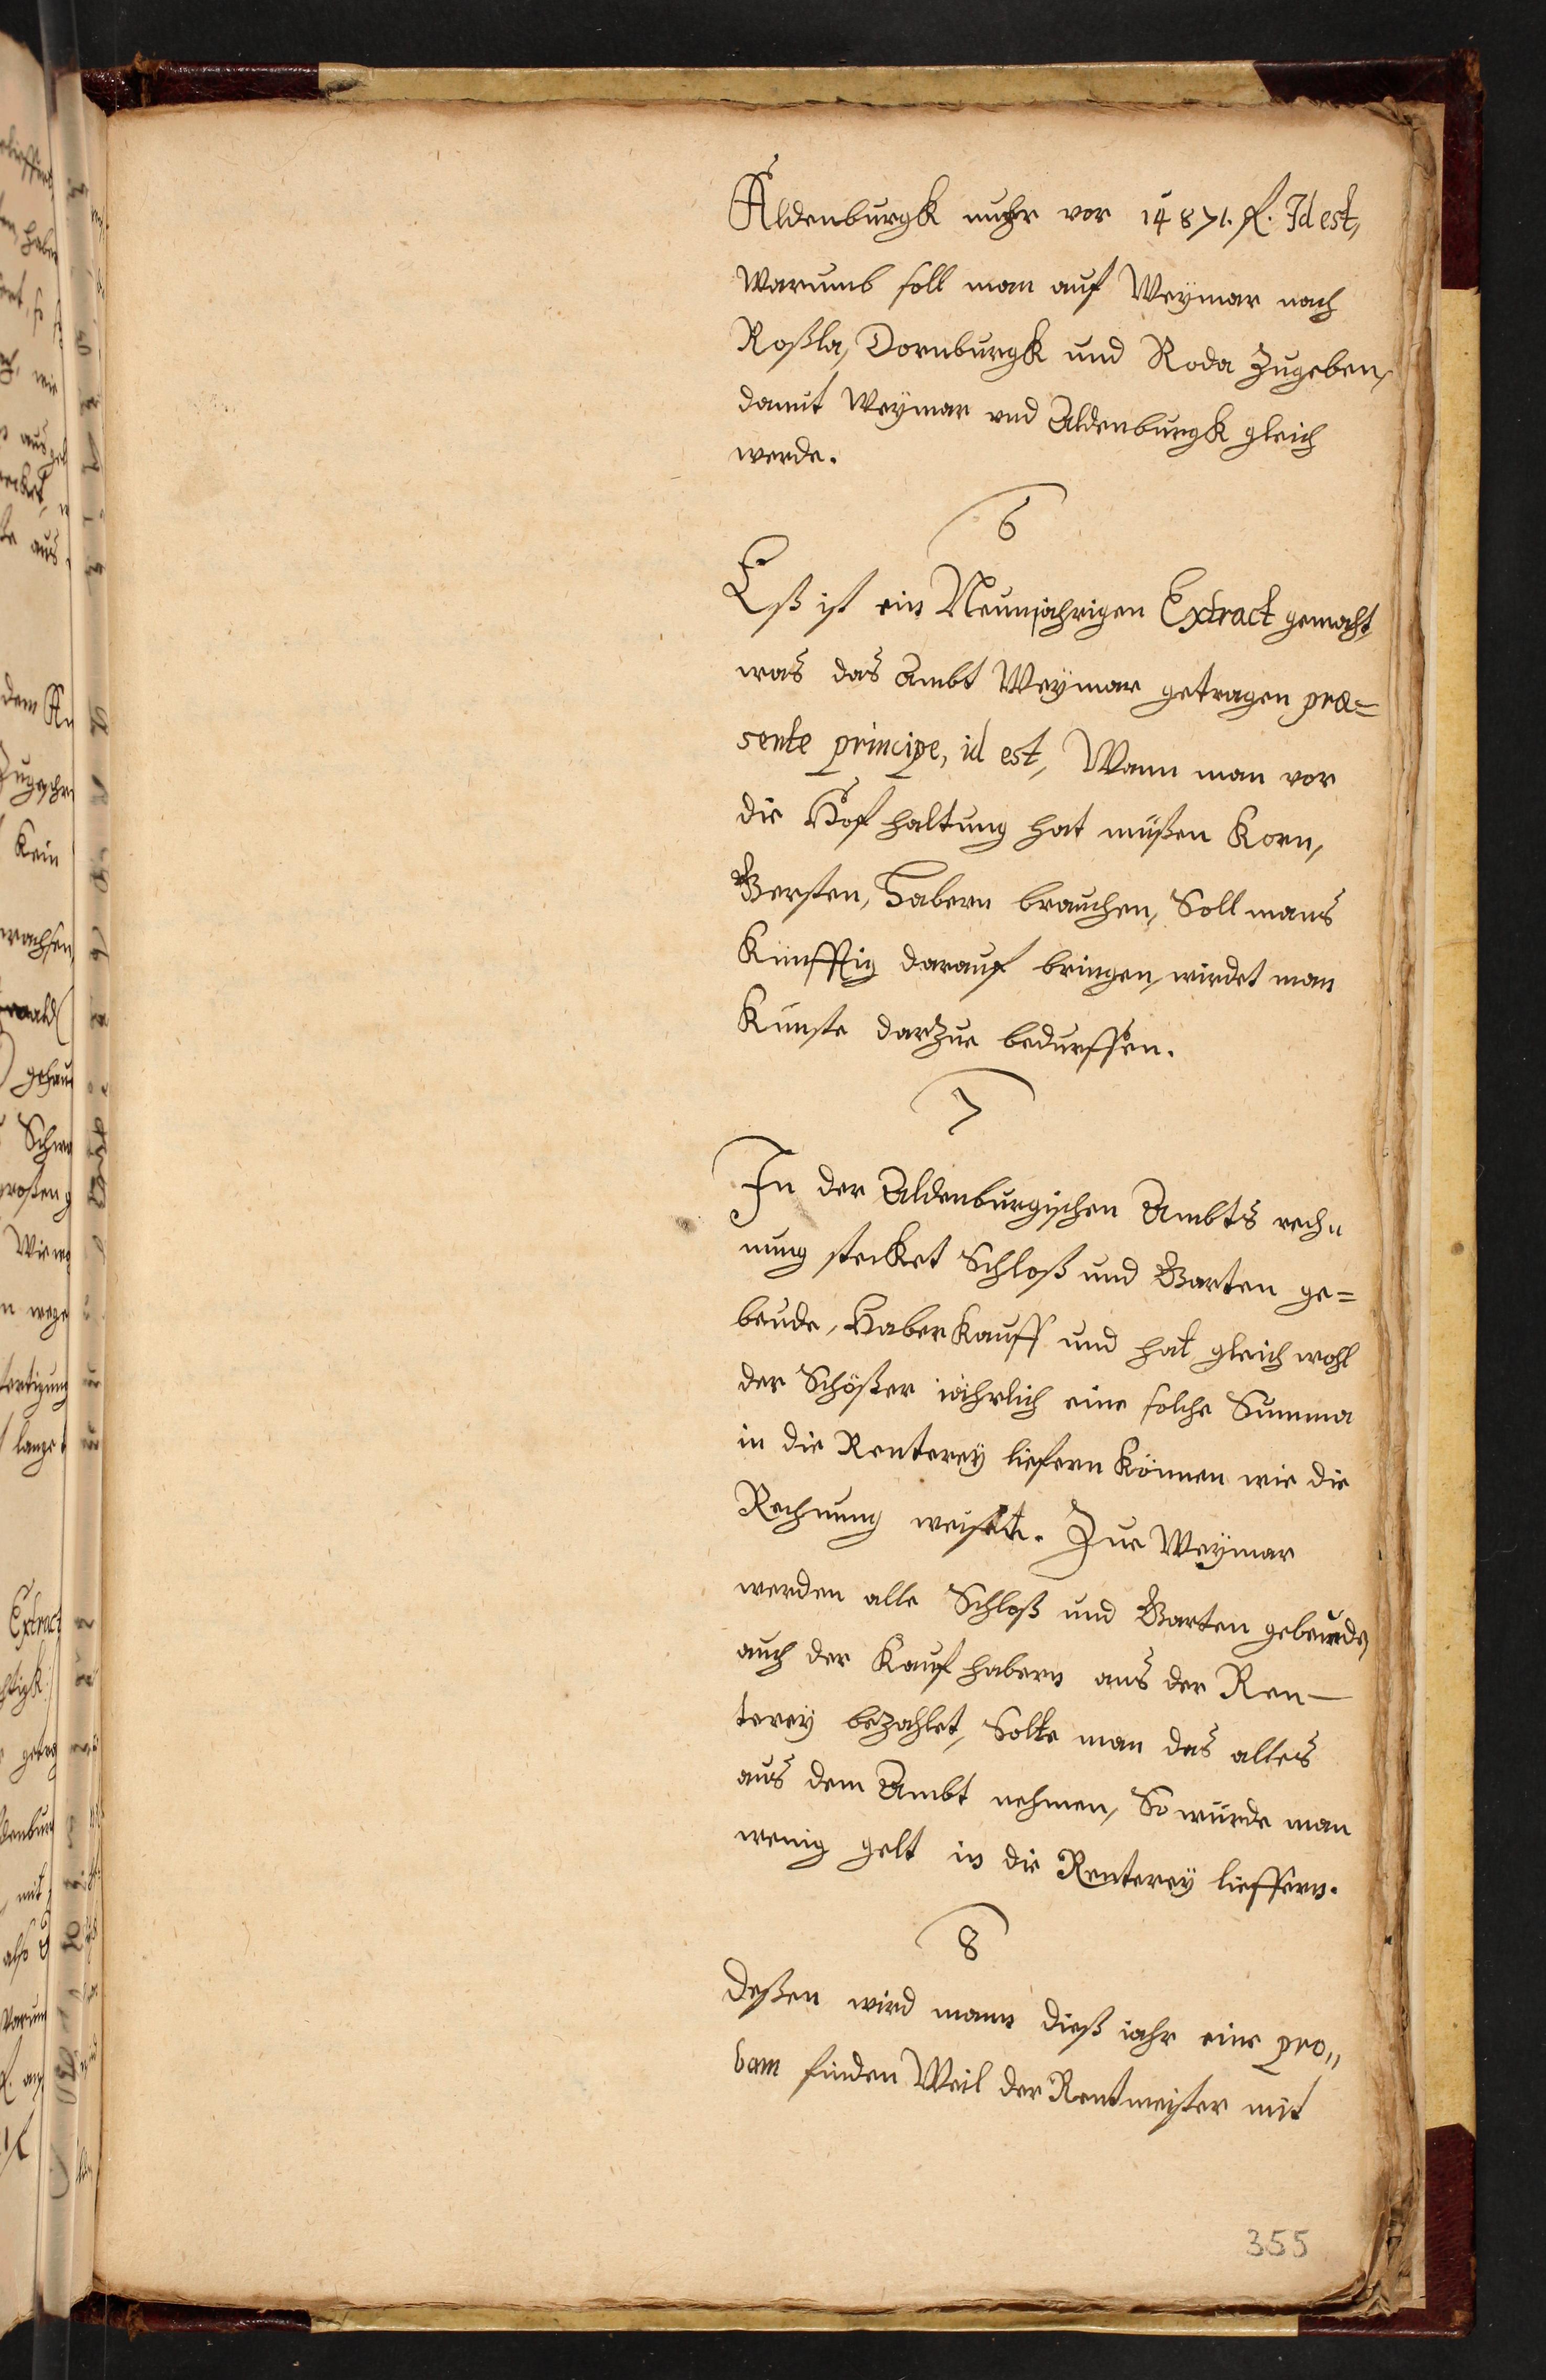 Aldenburgk nuhr vor 14871. fl. Id est,
warumb soll man auf Weÿmar nach
Roßla, Dornburgk und Roda Zugeben,
damit Weÿmar vnd Aldenburgk gleich
werde.
6
Eß ist ein Neunjahrigen Extract gemacht
was das Ambt Weÿmar getragen præ=
sente principe, id est, Wann man vor
die Hof haltung hat müßen Korn,
Gersten, Habern brauchen, Soll mans
Künfftig darauf bringen, wirdet man
Künste darzue bedurffen.
7
In der Aldenburgischen Ambts rech„
nung stecket Schloß und Garten ge=
beude, Haber Kauff und hat gleich wohl
der Schößer iährlich eine solche Summa
in die Renterey liefern Können wie die
Rechnung weiset. Zue Weÿmar
werden alle Schloß und Garten gebeude,
auch der Kauf habern aus der Ren-
terey bezahlet, Solte man das alles
aus dem Ambt nehmen, So würde man
wenig gelt in die Renterey lieffern.
8
deßen wird mann dieß iahr eine pro„
bam finden Weil der Rentmeister mit
355